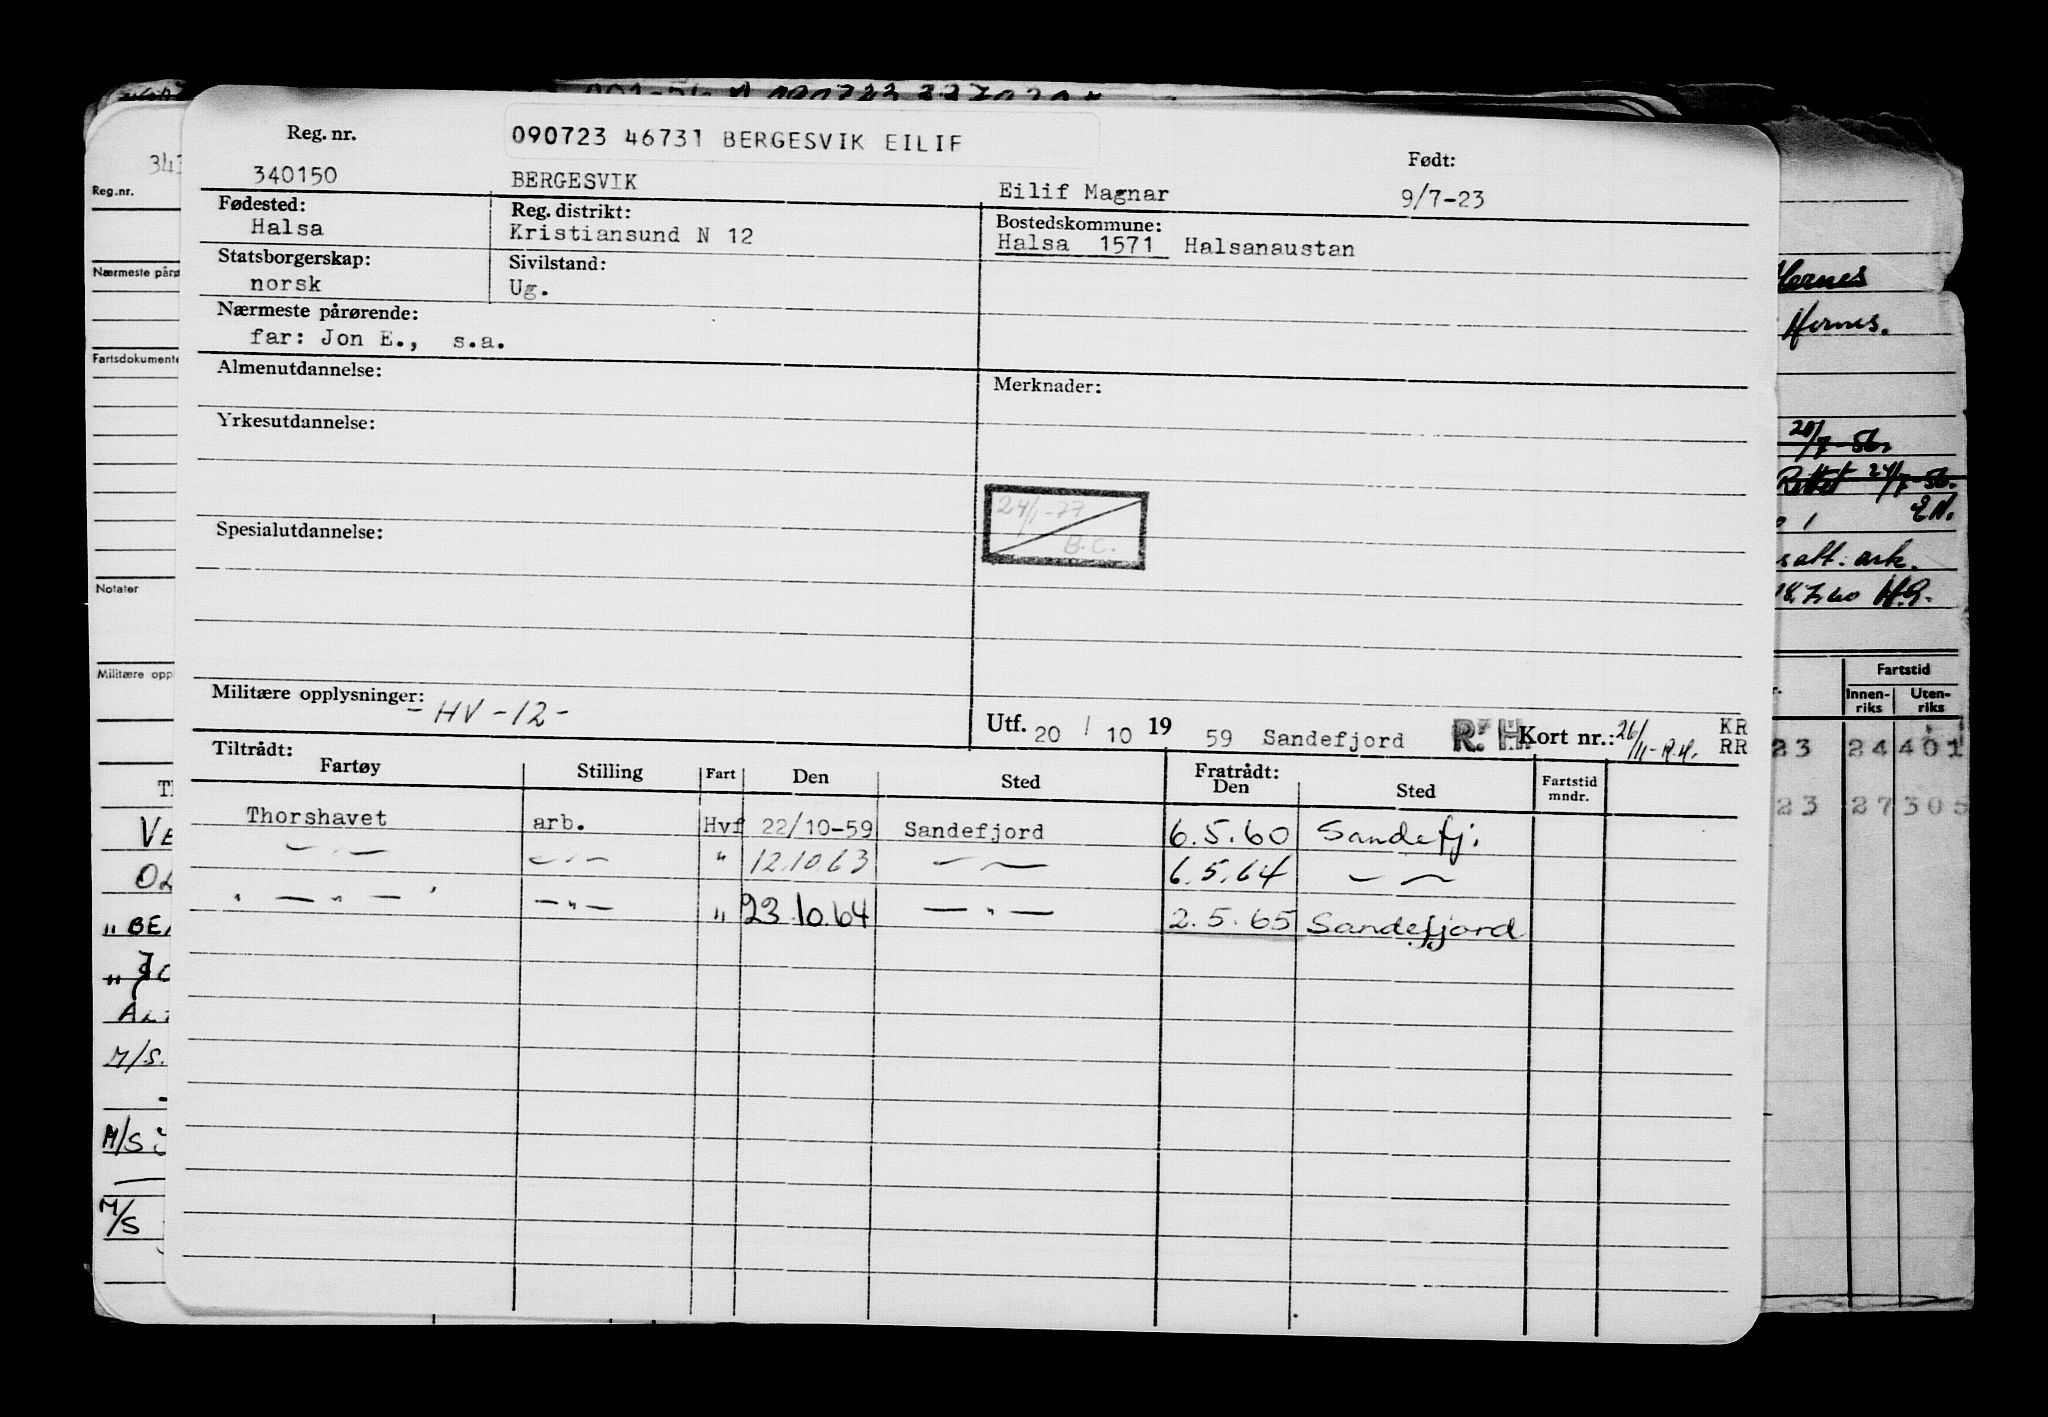 Reg. nr.
090723 46731 BERGESVIK EILIF
Født:
340150 BERGESVIK Eilif Magnar 9/7-23
Fødested: Reg. distrikt: Bostedskommune:
Halsa Kristiansund N 12 Halsa 1571 Halsanaustan
Statsborgerskap: Sivilstand:
norsk Ug.
Nærmeste pårørende:
far: Jon E., s.a.
Almenutdannelse: Merknader:
Yrkesutdannelse:
24/1-77
B.C.
Spesialutdannelse:
Militære opplysninger:
- HV-12-
Utf. 20 / 10 19 59 Sandefjord R.H. Kort nr.: 26/11-R.H. KR
RR
Tiltrådt: Fratrådt:
Fartøy Stilling Fart Den Sted Den Sted Fartstid
mndr.
Thorshavet arb. Hvf 22/10-59 Sandefjord 6.5.60 Sandefj.
— " — — " — " 12.10.63 — " — 6.5.64 — " —
" — " — — " — " 23.10.64 — " — 2.5.65 Sandefjord
Reg.nr.
Nærmeste pårø
Fartsdokumente
Notater
Militære oppl
" BEA
M/S.
M/S
M/S
Hernes
Hernes.
20/7-56
24/7-56.
E.N.
att. ark.
18.7.60 H.G.
Fartstid
Innen-
riks
Uten-
riks
23 24 401
23 27 305